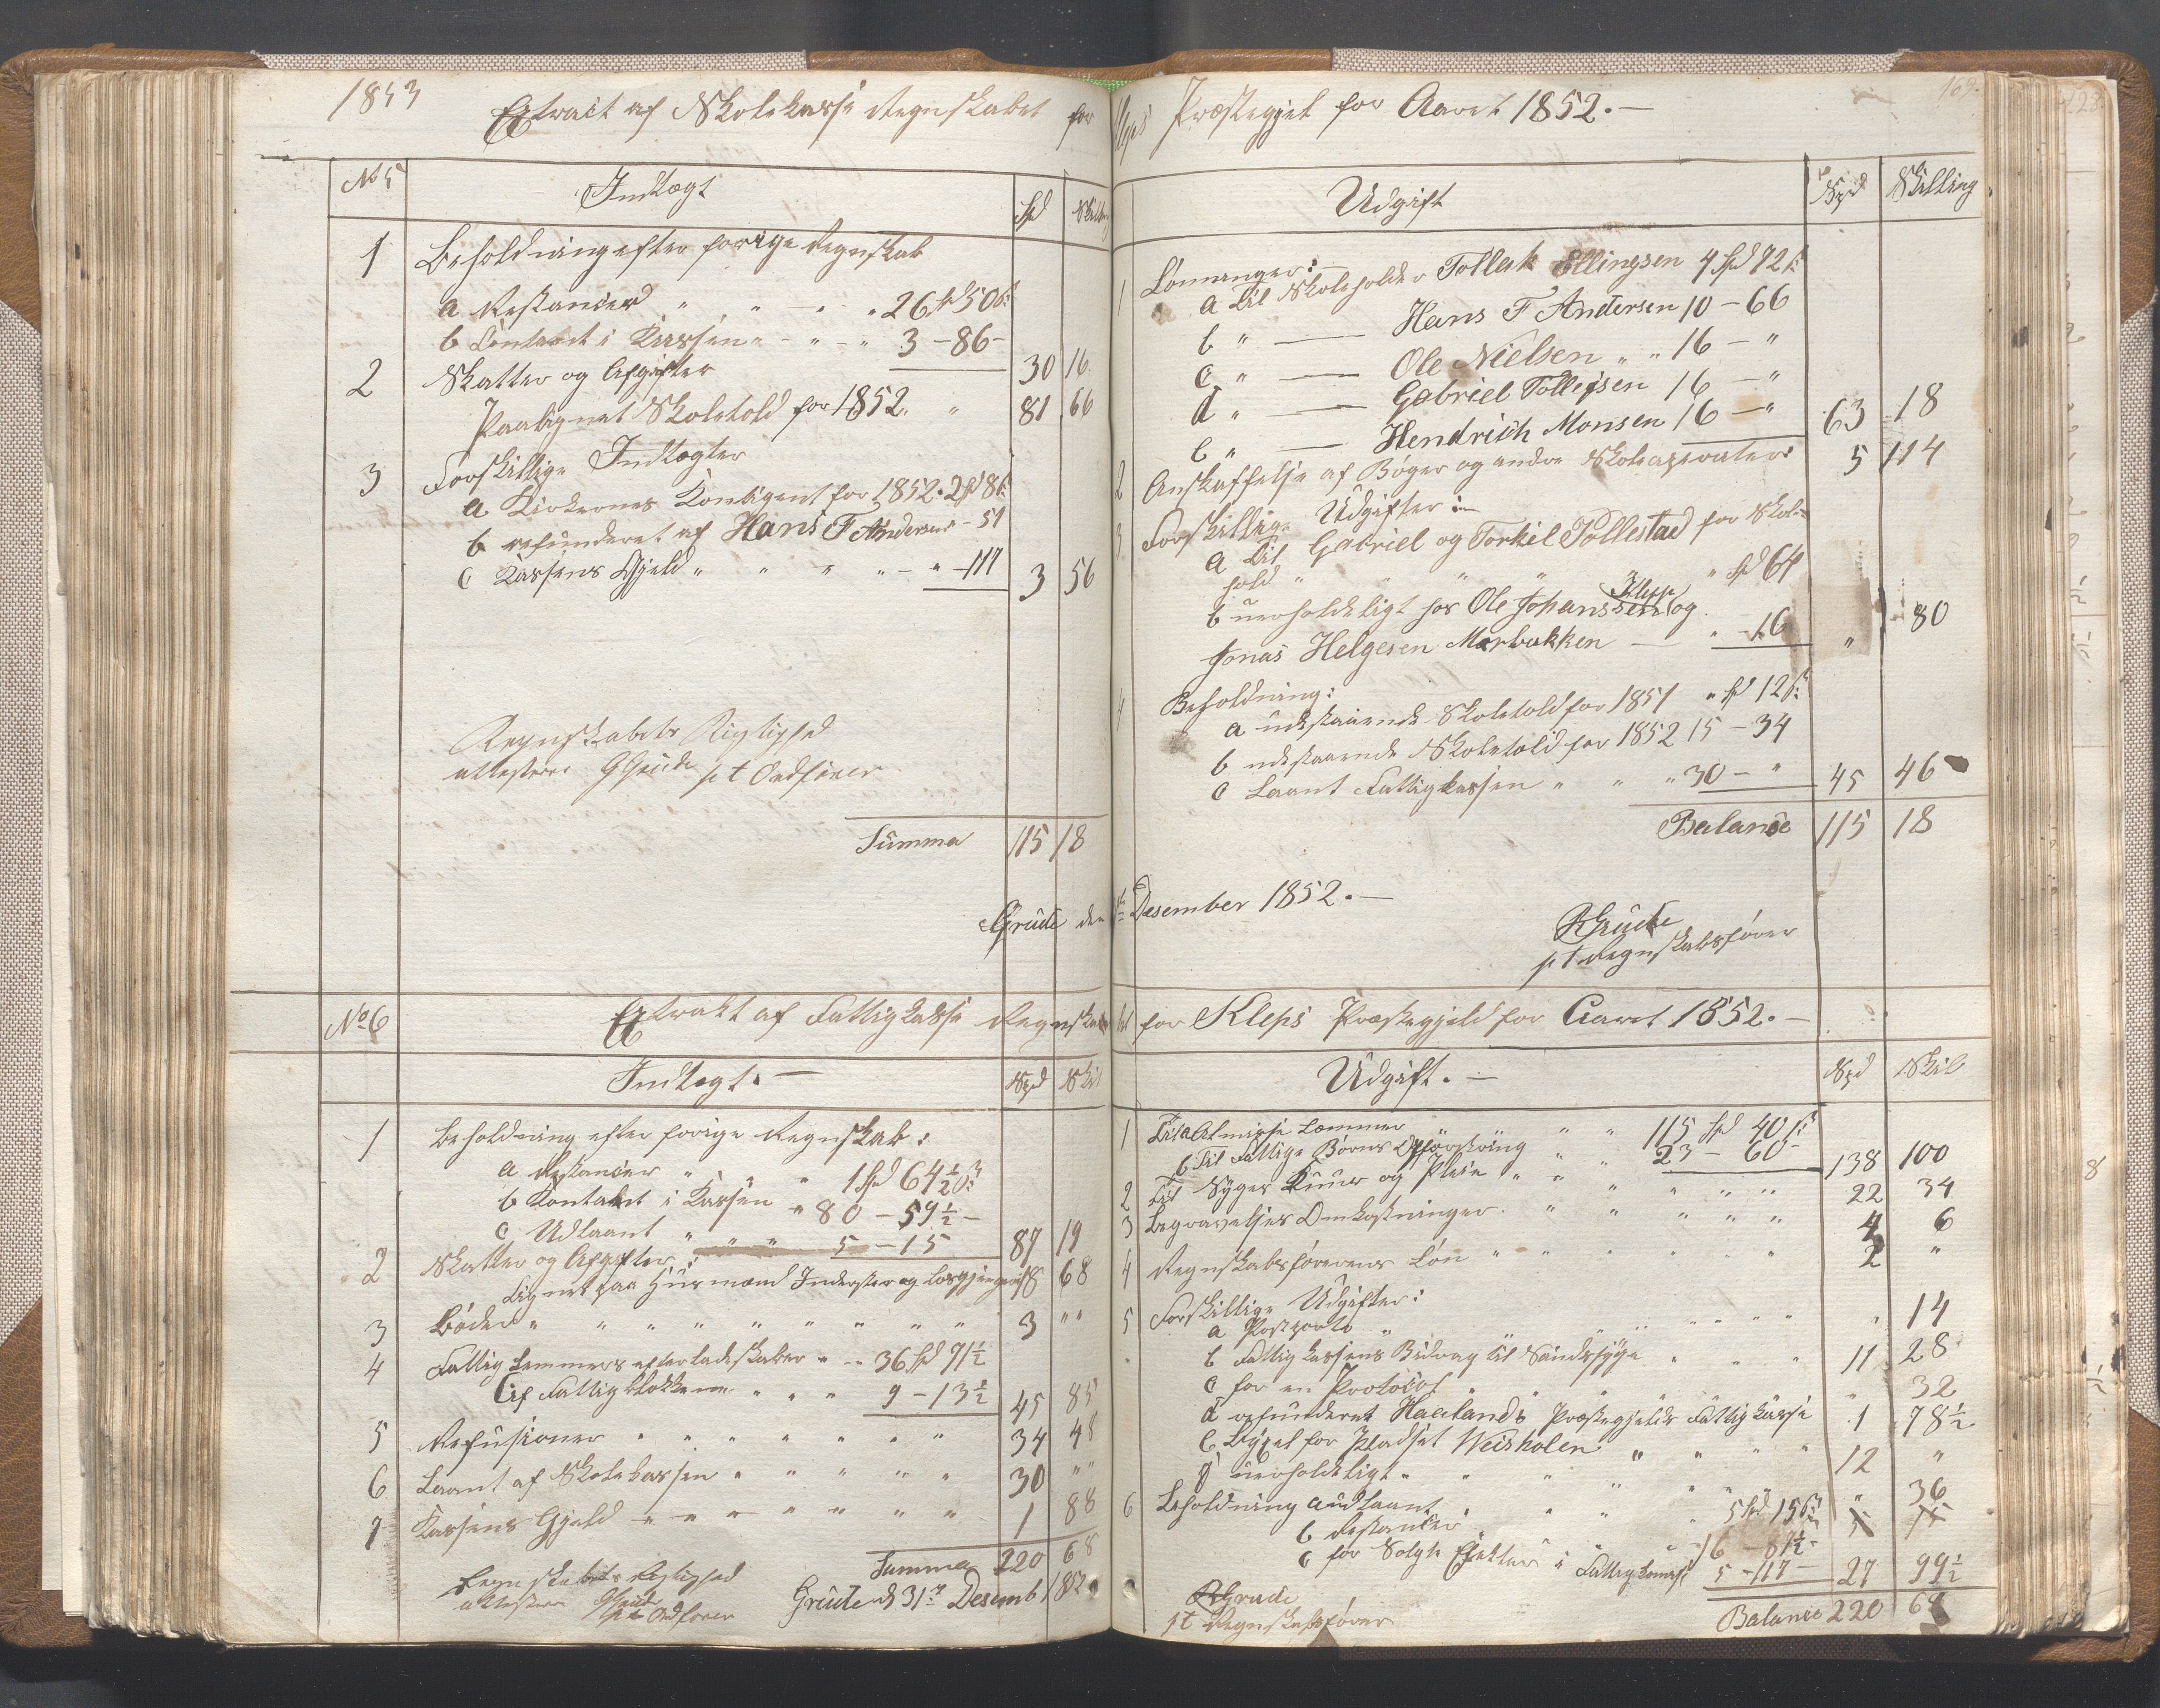 1853
Extrait af Skolekasse Regnskabet for Præstegjel for Aaret 1852.—
169.
No 5
Indtægt
Spd
Skilling
1 Beholdning efter forrige Regnskab
a Restancer " " " " 26 Spd 50 ß
b Contant i Kassen " - " - " 3 - 86 -
30 16
2 Skatter og Afgifter
Paalignet Skoletold for 1852. " 81 66
3 Forskillige Indtægter
a Kirkernes Kontigent for 1852. 2 Spd 8 ß
b refunderet af Hans F Andersen - 51
c Kassens Gjeld " " " " - " - 117
3 56
Regnskabets Rigtighed
attesterer GGrude pt Ordfører
Summa 115 18
Grude den Desember 1852.—
Udgift
Spd
Skilling
1 Lønninger:
a Til Skoleholder Tollak Ellingsen 4 Spd 72 ß
b " — Hans F Andersen 10 - 66
c " — Ole Nielsen " " 16 - "
d " — Gabriel Tollefsen 16 - "
e " — Hendrich Monsen 16 - " 63 18
2 Anskaffelse af Bøger og andre Skoleaperater 5 114
3 Forskillige Udgifter:
a Til Gabriel og Torkel Pollestad for Skole-
hold " " " " " " Spd 64
b uerholdeligt hos Ole Johanssen Klepp og
Jonas Helgesen Marbakken — " - 16 " 80
4 Beholdning:
a udestaaende Skoletold for 1851 " Spd 12 ß
b udestaaende Skoletold for 1852 15 - 34
c Laant Fattigkassen " " " 30 - " 45 46
Balance 115 18
RGrude
pt Regnskabsfører
No 6
Extrakt af Fattigkasse Regnskabet for Kleps Præstegjeld for Aaret 1852.—
Indtægt.—
Spd
Skil
1 Beholdning efter forige Regnskab:
a Restancer " " 1 Spd 64 ½ ß
b Kontant i Kassen " 80 - 59 ½ -
c Udlaant " " " 5 - 15 87 19
2 Skatter og Afgifter:
Lignet paa Husmænd Inderster og Løsgjengere 18 68
3 Bøder " " " " " " " " " 3 " "
4 Fattig Lemmers efterladeskaber " " 36 Spd 71 ½
Af Fattigblokkene " " " 9 - 13 ½ 45 85
5 Refusioner " " " " " " " 34 48
6 Laant af Skolekassen " " " " " 30 " "
7 Kassens Gjeld " " " " " " " 1 88
Summa 220 68
Regnskabets Rigtighed
attesterer GGrude
pt Ordfører
Grude d 31te Desemb 1852
Udgift.—
Spd
Skil
1 Til a Almisse Lemmer " " 115 Spd 40 ß
b Til Fattige Børns Opfostring " " 23 - 60 - 138 100
2 Til Syges Kuur og Pleie " " " " " " 22 34
3 Begravelses Omkostninger. " " " " " 4 6
4 Regnskabsførerens Løn " " " " " " 2 "
5 Forskillige Udgifter:
a Postporto " " " " " " " " 14
b Fattig Kassens Bidrag til Sindssyge " " " 11 28
c for en Protocol " " " " " " 32
d refunderet Haalands Præstegjelds Fattigkasse 1 78 ½
e Byxel for Pladset Weisholen " " " " 12 "
f uerholdeligt " " " " " " " 36
6 Beholdning a udlaant " " " " 5 Spd 15 ß
b Restancer " " " " 16 - 87 ½ -
c for Solgte Efekter i Fattigkomis 5 - 117 - 27 99 ½
Balance 220 68
RGrude
pt Regnskabsfører